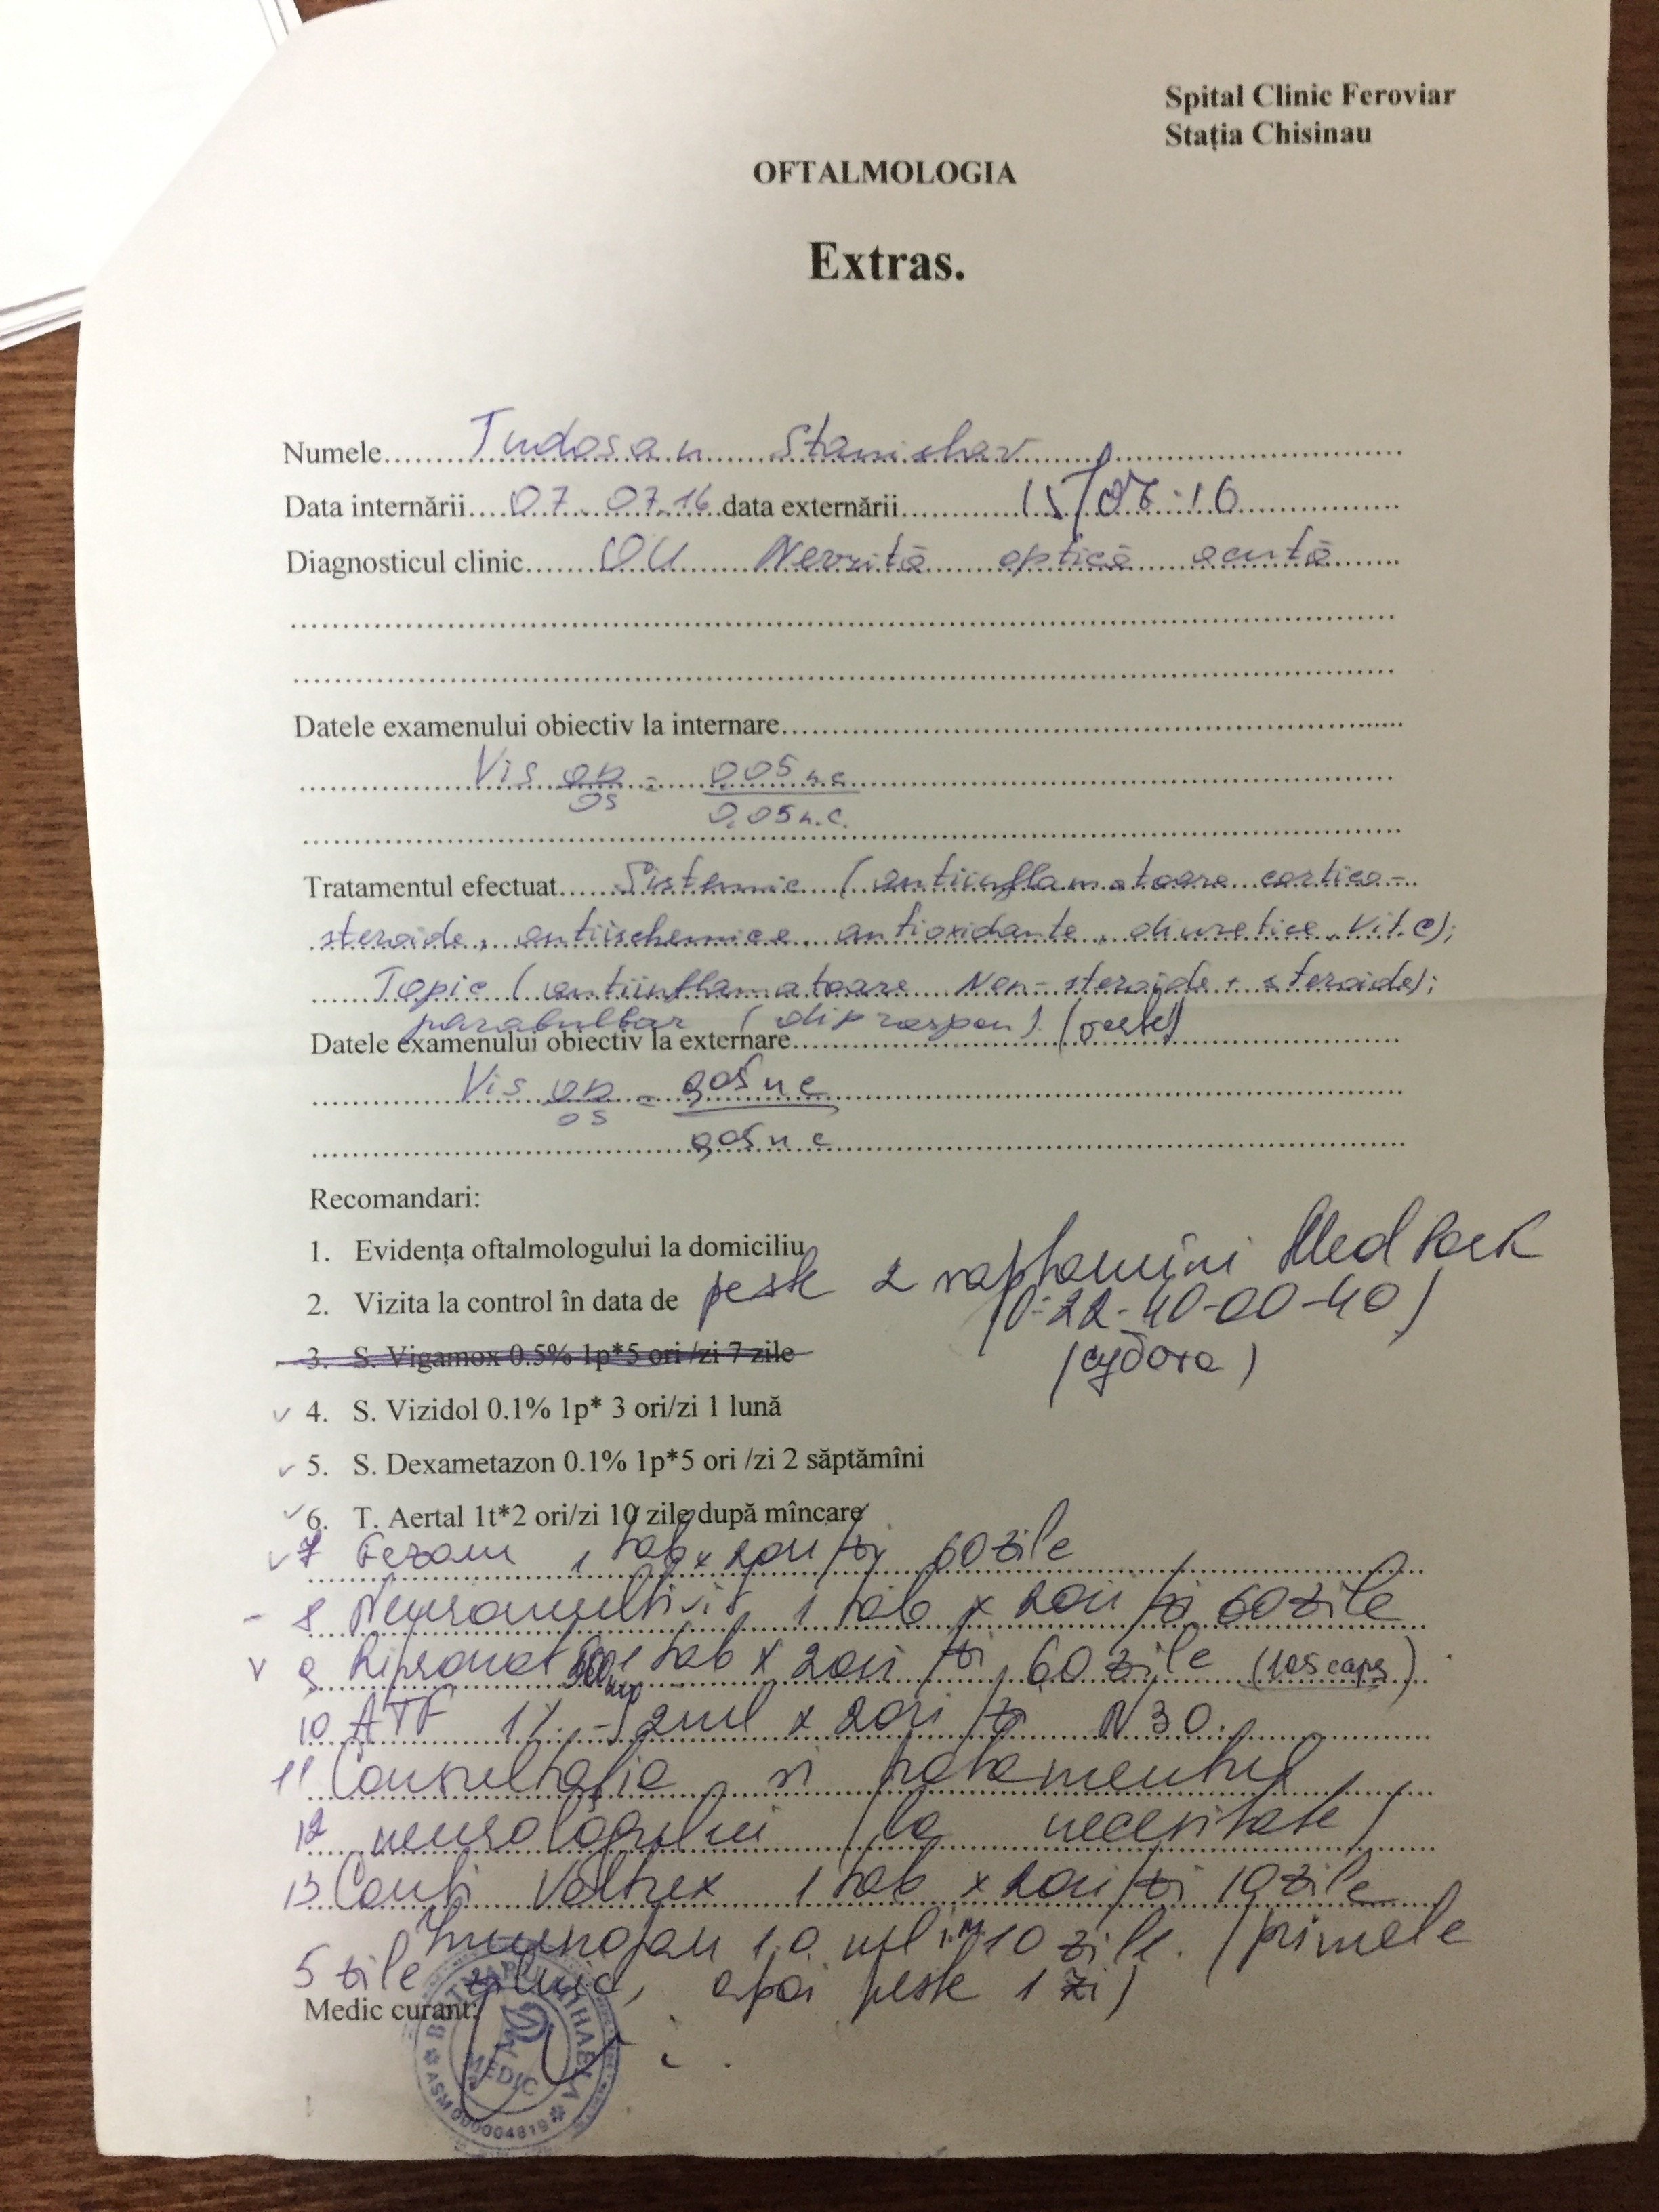 Spital Clinic Feroviar
Stația Chisinau
OFTALMOLOGIA
Extras.
Numele Tudosan Stanislav
Data internării 07.07.16 data externării 15/07.16
Diagnosticul clinic OU Nevrită optică acută
Datele examenului obiectiv la internare
Vis OD = 0,05 n.c.
OS 0,05 n.c.
Tratamentul efectuat Sistemic (antiinflamatoare cortico-
steroide, antiischemice, antioxidante, diuretice, Vit. C);
Topic (antiinflamatoare Non-steroide + steroide);
parabulbar (diprospan)
Datele examenului obiectiv la externare
Vis OD = 0,05 n c
OS 0,05 n c
Recomandari:
1. Evidența oftalmologului la domiciliu
2. Vizita la control în data de peste 2 saptamîni Med Park
(0-22-40-00-40)
(суббота)
3. S. Vigamox 0.5% 1p*5 ori /zi 7 zile
4. S. Vizidol 0.1% 1p* 3 ori/zi 1 lună
5. S. Dexametazon 0.1% 1p*5 ori /zi 2 săptămîni
6. T. Aertal 1t*2 ori/zi 10 zile după mîncare
7 Fezam 1 tab x 2 ori/zi 60 zile
8 Neuromultivit 1 tab x 2 ori/zi 60 zile
9 500 1 tab x 2 ori/zi 60 zile (caps)
10 ATF 1% - 2 ml x 2 ori/zi N 30.
11 Consultația si tratamentul
12 neurologului (la necesitate)
13 Conti Valtrex 1 tab x 2 ori/zi 10 zile
Imunofan 1,0 ml i.m 10 zile. (primele
5 zile zilnic, apoi peste 1 zi)
Medic curant:
MEDIC
ASM 000004819